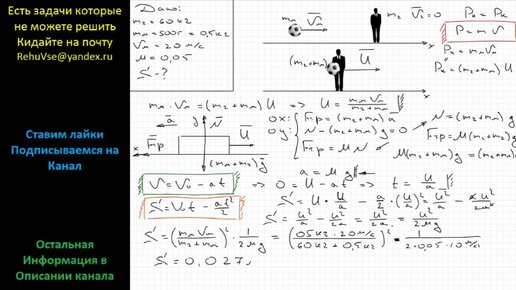 Есть задачи которые
не можете решить
Кидайте на почту
RehuVse@yandex.ru
Ставим лайки
Подписываемся на
Канал
Остальная
Информация в
Описании канала
Дано:
m₂ = 60 кг
mл = 500г = 0,5 кг
Vл = 20 м/с
μ = 0,05
S - ?
mл Vл m₂ V₂ = 0
x
(m₂+mл) U
x
Pн = Pк
P = m V
Pн = mл Vл
Pк = (m₂+mл) U
mл · Vл = (m₂+mл) U => U = mл Vл / (m₂+mл)
a y N U
Fтр
x
(m₂+mл) g
ox: Fтр = (m₂+mл) a
oy: N - (m₂+mл) g = 0
Fтр = μ N
N = (m₂+mл) g
Fтр = μ (m₂+mл) g
μ (m₂+mл) g = (m₂+mл)
a = μ g
V = V₀ - at => 0 = U - at => t = U/a
S = V₀t - at²/2
S = U · U/a - a/2 · (U/a)² = U²/a - aU²/2a²
S = U²/a - U²/2a = U²/2a = U²/2μg
S = (mл Vл / (m₂+mл))² · 1/2μg = (0,5 кг · 20 м/с / 60 кг + 0,5 кг)² · 1 / 2 · 0,05 · 10 м/с²
S = 0,027